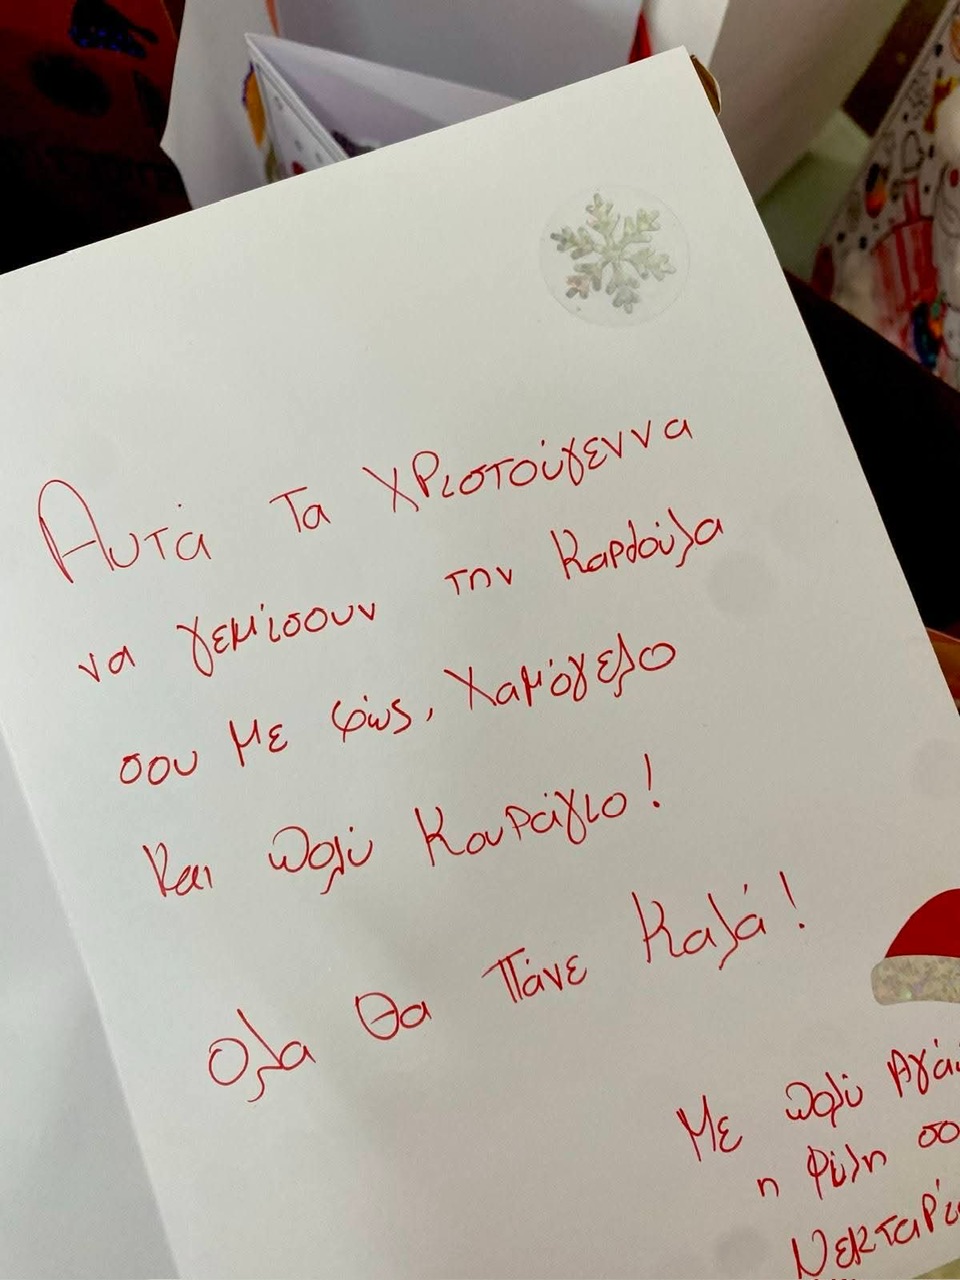 Αυτά Τα Χριστούγεννα
να γεμίσουν την Καρδούλα
σου με φώς, Χαμόγελο
και πολύ Κουράγιο!
Ολα Θα Πάνε Καλά!
Με πολύ
η Φίλη